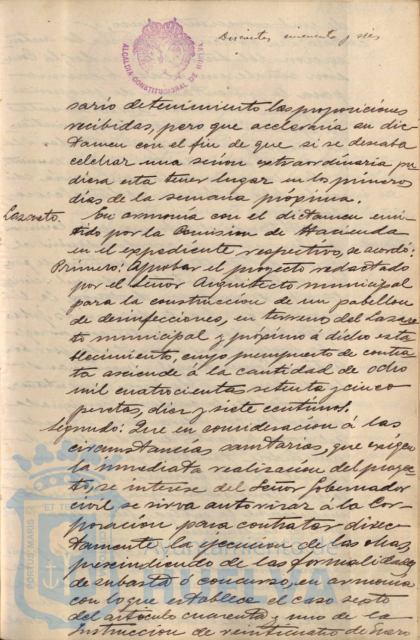 Doscientos cincuenta y seis
ALCALDIA CONSTITUCIONAL DE
sario detenimiento las proposiciones
recibidas, pero que aceleraria su dic-
tamen con el fin de que si se deseaba
celebrar una sesion extraordinaria pu
diera esta tener lugar en los primeros
dias de la semana próxima.
Lazareto. En armonia con el dictamen emi-
tido por la Comision de Hacienda
en el expediente respectivo, se acordó:
Primero: Aprobar el proyecto redactado
por el señor Arquitecto municipal
para la construccion de un pabellon
de desinfecciones, en terreno del Lazare
to municipal y próximo á dicho esta
blecimiento, cuyo presupuesto de contra
ta asciende á la cantidad de ocho
mil cuatrocientas setenta y cinco
pesetas, diez y siete centimos.
Segundo: Que en consideracion á las
circunstancias sanitarias, que exigen
la inmediata realizacion del proyec
to, se interese del Señor Gobernador
civil se sirva autorizar á la Cor-
poracion para contratar direc-
tamente la ejecucion de las obras,
prescindiendo de las formalidades
de subasta ó concurso, en armonia
con lo que establece el caso sexto
del articulo cuarenta y uno de la
Instruccion de veinticuatro de
Ayuntamiento de
PORTUS MARIS